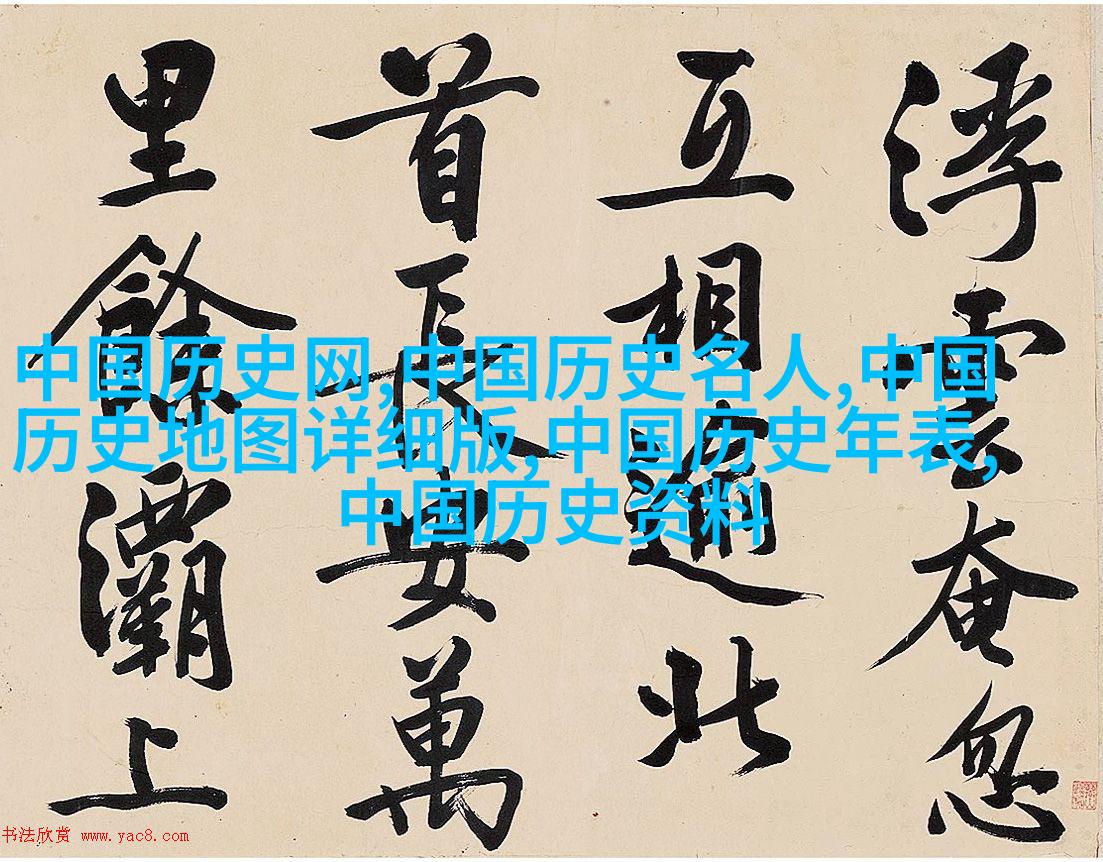 浮雲奄忽
互相逾北
首長安萬
里餘灞上
中国历史网,中国历史名人,中国
历史地图详细版,中国历史年表,
中国历史资料
书法欣赏 www.yac8.com